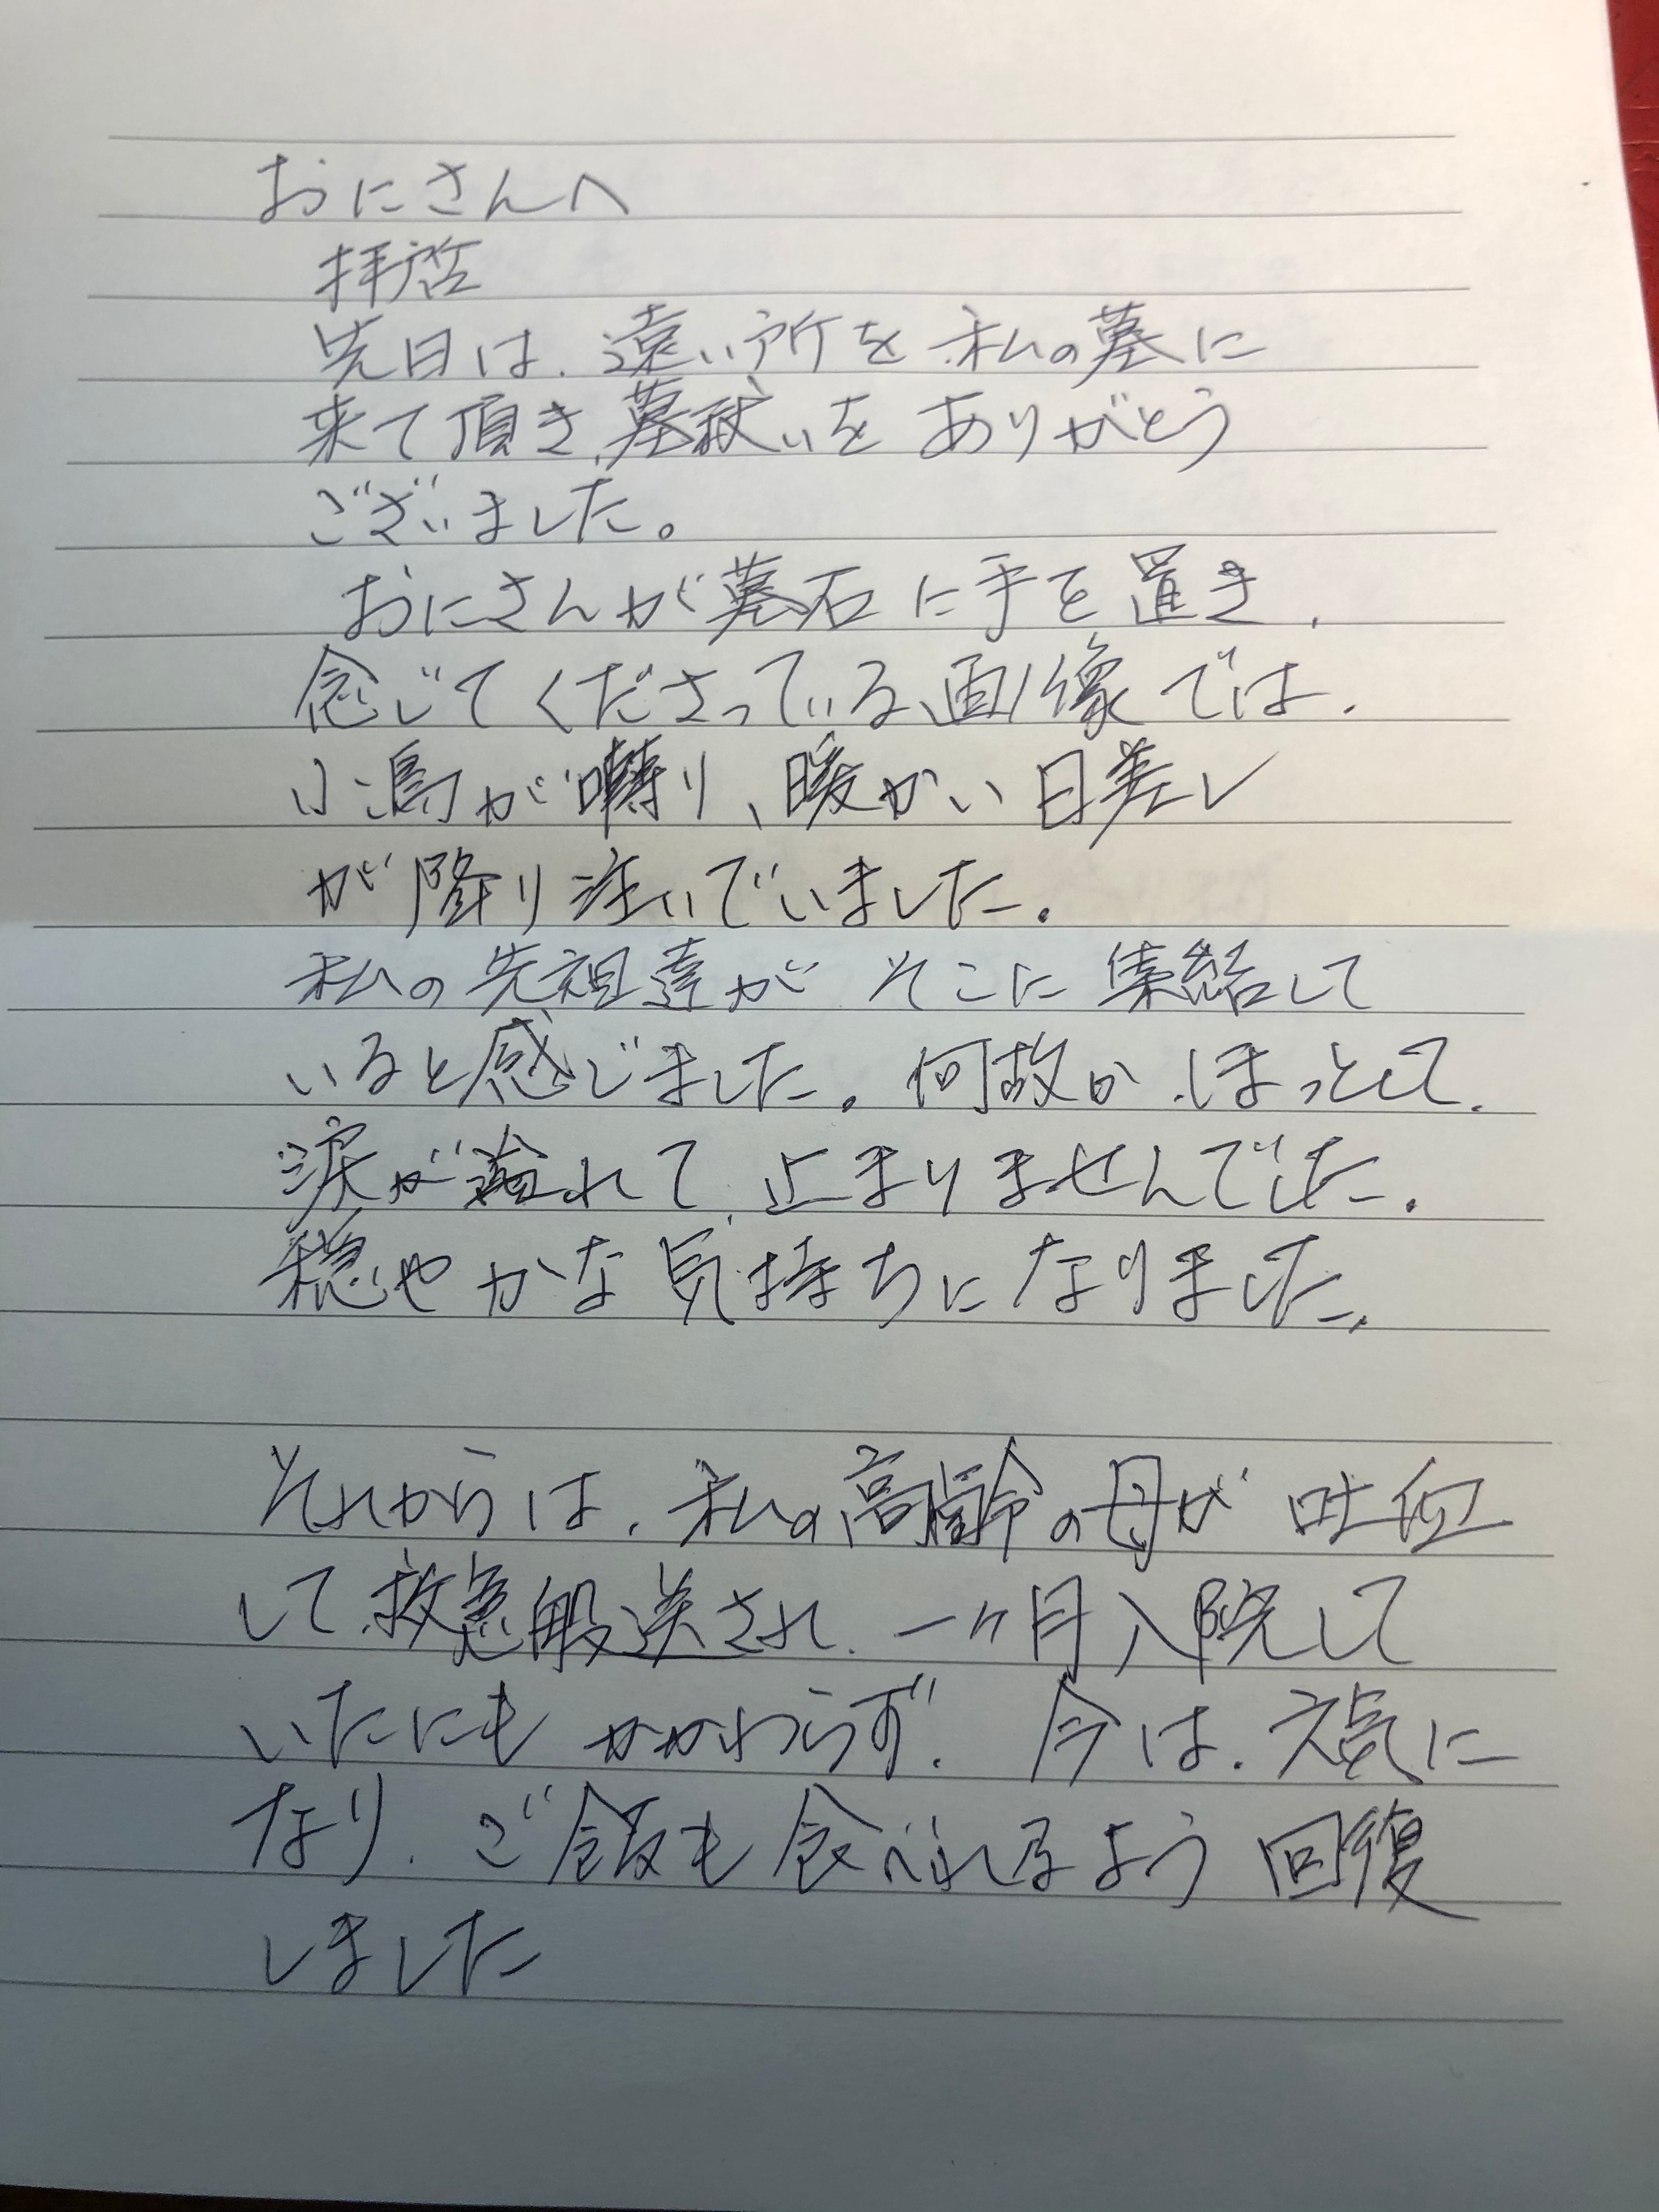 おにさんへ
拝啓
先日は、遠い所を私の墓に
来て頂き、墓祓いを ありがとう
ございました。
おにさんが墓石に手を置き、
念じてくださっている画像では、
小鳥が囀り、暖かい日差し
が降り注いでいました。
私の先祖達が そこに集結して
いると感じました。何故か、ほっとして、
涙が溢れて、止まりませんでした。
穏やかな気持ちになりました。
それからは、私の高齢の母が 吐血
して救急搬送され、一ヶ月入院して
いたにも かかわらず、今は、元気に
なり、ご飯も食べれるよう 回復
しました